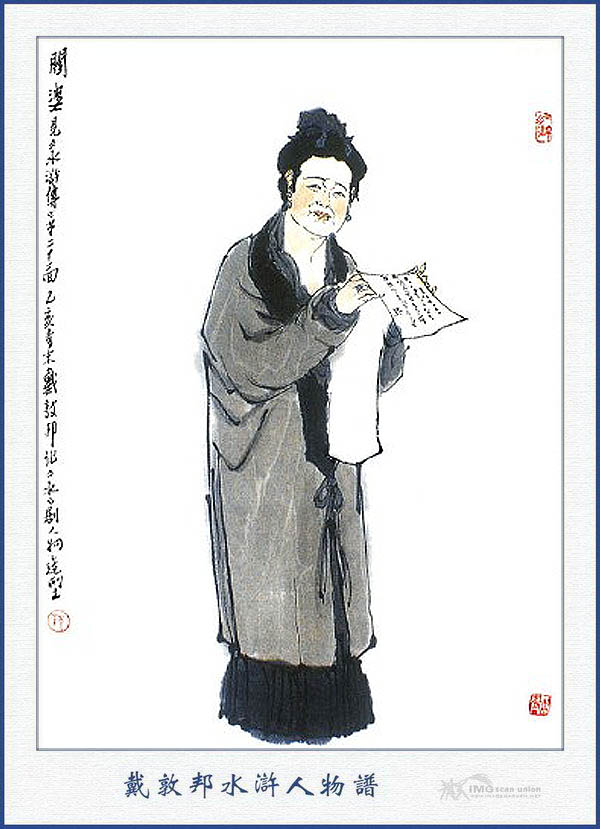 閻婆 見水滸傳第二十回 乙亥春末戴敦邦作水滸劇人物造型
戴敦邦水滸人物譜
IMG scan union